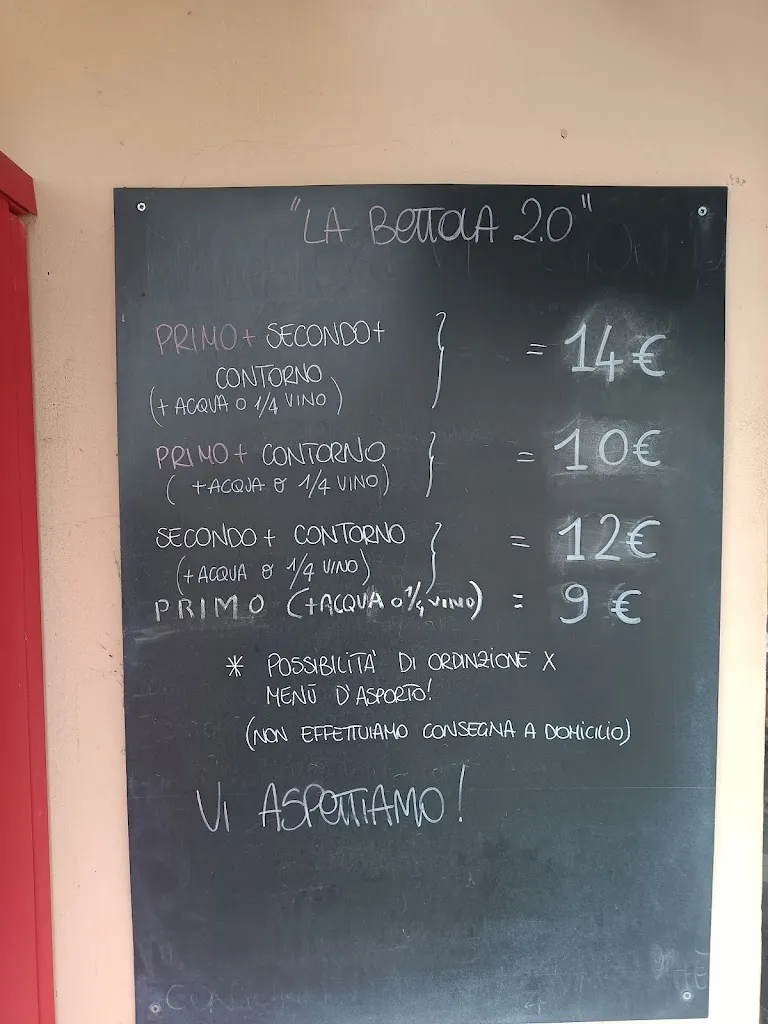 "LA BETTOLA 2.0"
PRIMO + SECONDO + } = 14€
CONTORNO
(+ ACQUA O 1/4 VINO)
PRIMO + CONTORNO } = 10€
( +ACQUA O 1/4 VINO)
SECONDO + CONTORNO } = 12€
(+ACQUA O 1/4 VINO)
PRIMO (+ACQUA O 1/4 VINO) = 9€
* POSSIBILITA' DI ORDINZIONE X
MENÙ D'ASPORTO!
(NON EFFETTUIAMO CONSEGNA A DOMICILIO)
VI ASPETTIAMO!